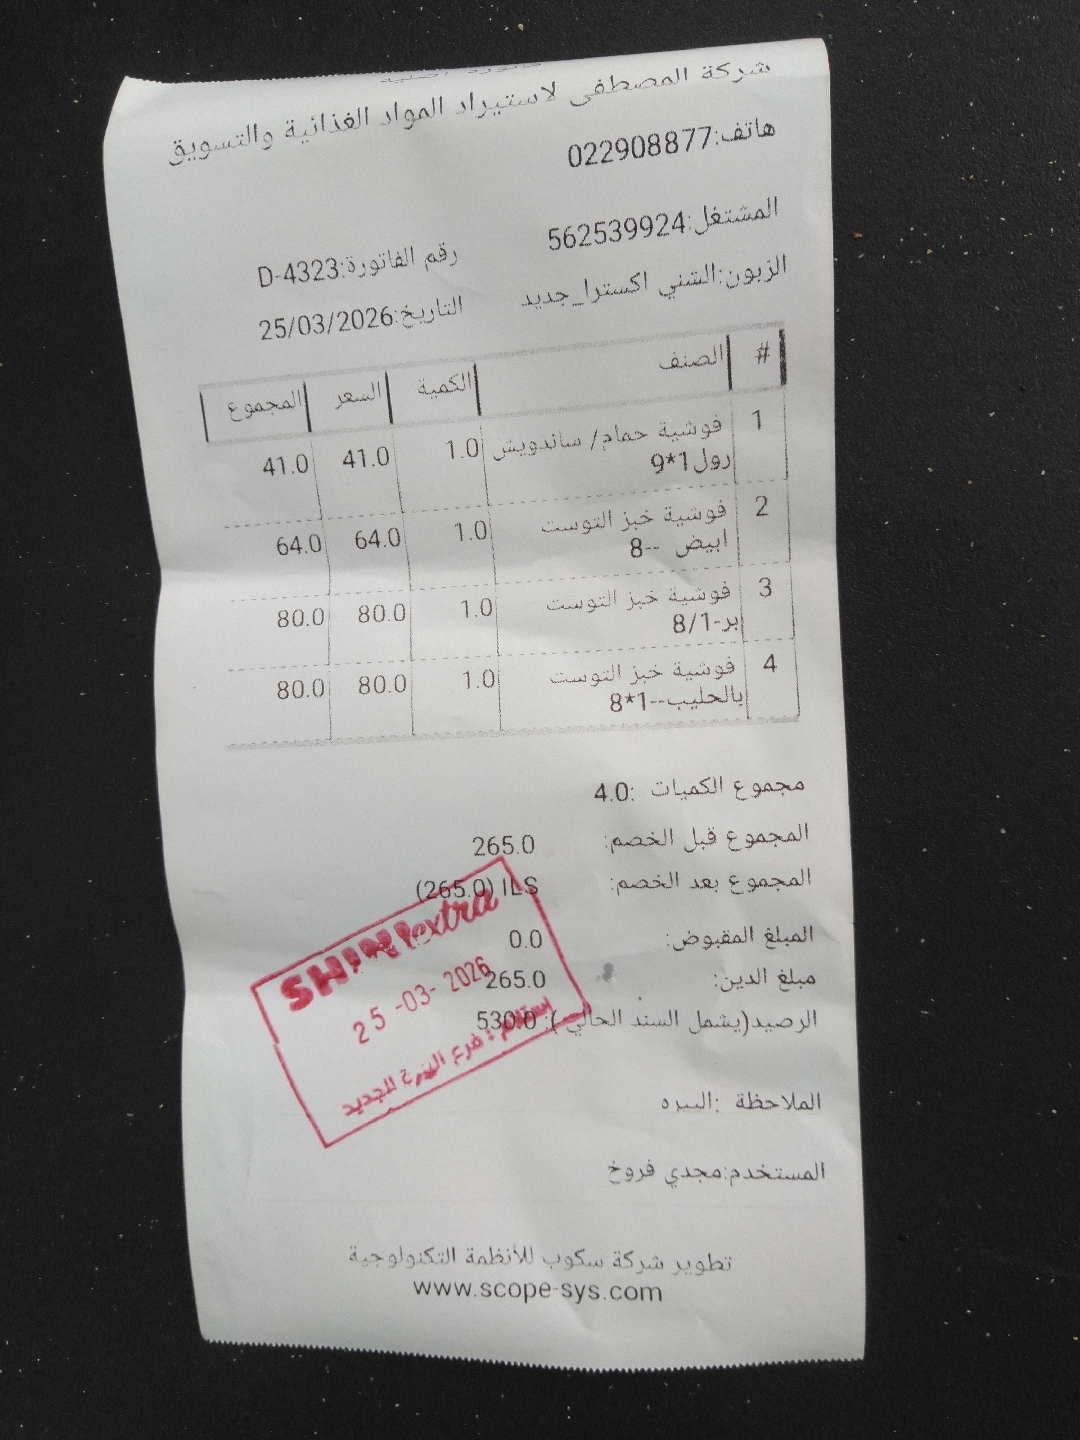 شركة المصطفى لاستيراد المواد الغذائية والتسويق
هاتف:022908877
المشتغل:562539924
رقم الفاتورة:D-4323
الزبون:الشني اكسترا_جديد
التاريخ:25/03/2026
# الصنف الكمية السعر المجموع
1 فوشية حمام/ ساندويش 1.0 41.0 41.0
رول1*9
2 فوشية خبز التوست 1.0 64.0 64.0
ابيض --8
3 فوشية خبز التوست 1.0 80.0 80.0
بر-8/1
4 فوشية خبز التوست 1.0 80.0 80.0
بالحليب--1*8
مجموع الكميات :4.0
المجموع قبل الخصم: 265.0
المجموع بعد الخصم: (265.0) ILS
المبلغ المقبوض: 0.0
مبلغ الدين: 265.0
الرصيد(يشمل السند الحالي ): 530.0
SHINI extra
25-03-2026
إستلام : فرع الجديد
الملاحظة :البيره
المستخدم:مجدي فروخ
تطوير شركة سكوب للأنظمة التكنولوجية
www.scope-sys.com